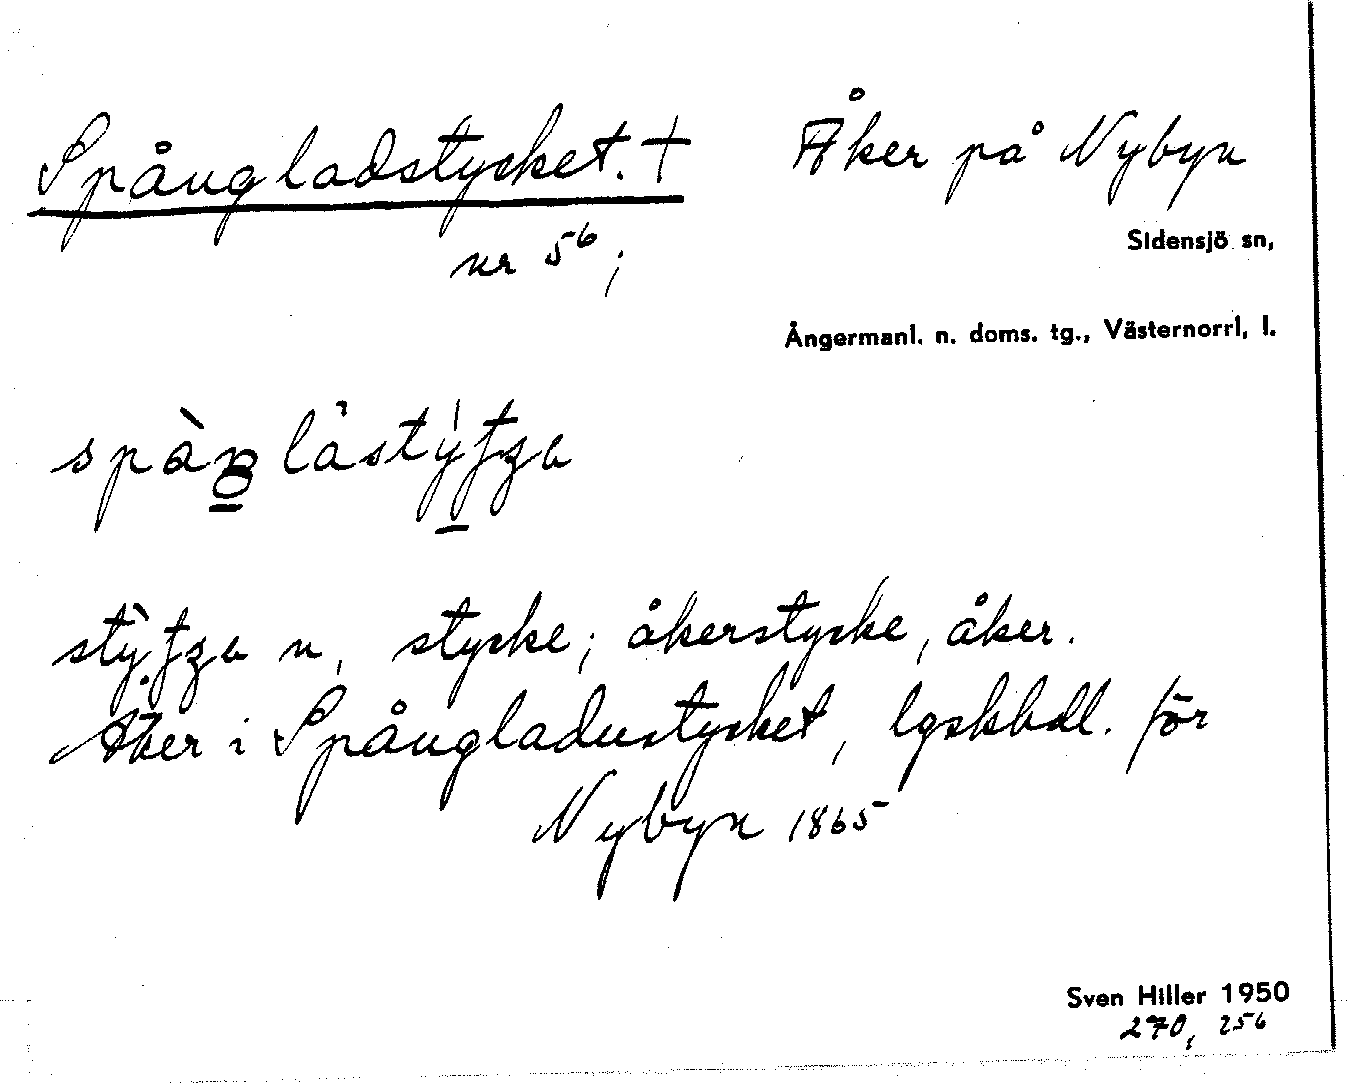 Spångladstycket. † Åker på Nybyn
nr 56;
Sidensjö sn,
Ångermanl. n. doms. tg., Västernorrl, l.
n, stycke; åkerstycke, åker.
Åker i Spångladustycket, lgskbdl. för
Nybyn 1865
Sven Hiller 1950
270, 256